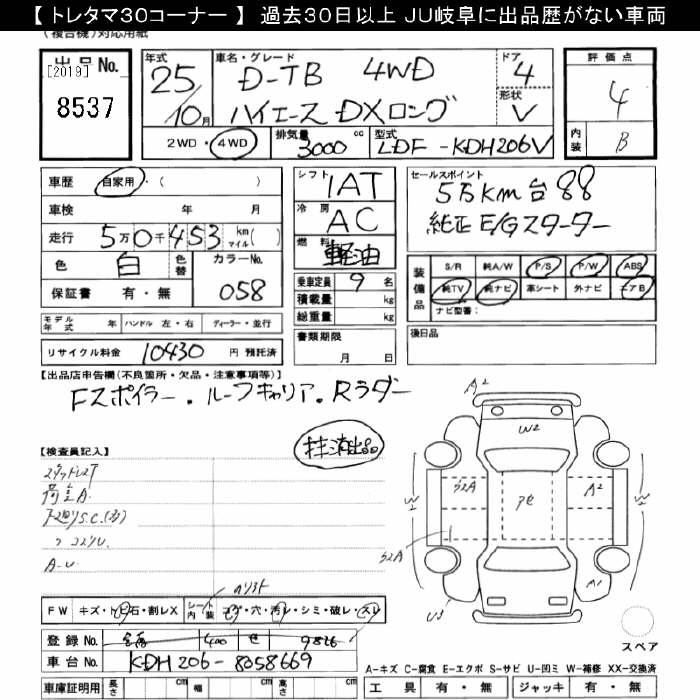 【 トレタマ30コーナー 】 過去30日以上 JU岐阜に出品歴がない車両
(複合機)対応用紙
出品No.
[2019]
8537
年式 25 / 10月
車名・グレード D-TB 4WD
ハイエース DXロング
ドア 4
形状 V
評価点 4
内装 B
2WD・4WD
排気量 3000 cc
型式 LDF-KDH206V
車歴 自家用・( )
車検 年 月
走行 5万0千453 km マイル( )
色 白 色替 カラーNo. 058
保証書 有・無
シフト 1AT
冷房 AC
燃料 軽油
乗車定員 9 名
積載量 kg
総重量 kg
書類期限 月 日
セールスポイント
5万km台 88
純正E/Gスターター
装備品 S/R 純A/W P/S P/W ABS
純TV 純ナビ 革シート 外ナビ エアB
ナビ型番:
後日品
モデル年式 年 ハンドル 左・右 ディーラー・並行
リサイクル料金 10430 円 預託済
【出品店申告欄(不良箇所・欠品・注意事項等)】
Fスポイラー・ルーフキャリア・Rラダー
【検査員記入】
スタッドレス
荷室A
A-U
FW キズ・トビ石・割レX シート内装 コゲ・穴・汚レ・シミ・破レ・スレ
登録No. 400 9826
車台No. KDH206-8058669
車庫証明用 長さ cm 幅 cm 高さ cm
A2
W2
W2
32A
アセ
A2
W2
32A
A1
U3
スペア
A-キズ C-腐食 E-エクボ S-サビ U-凹ミ W-補修 XX-交換済
工具 有・無 ジャッキ 有・無